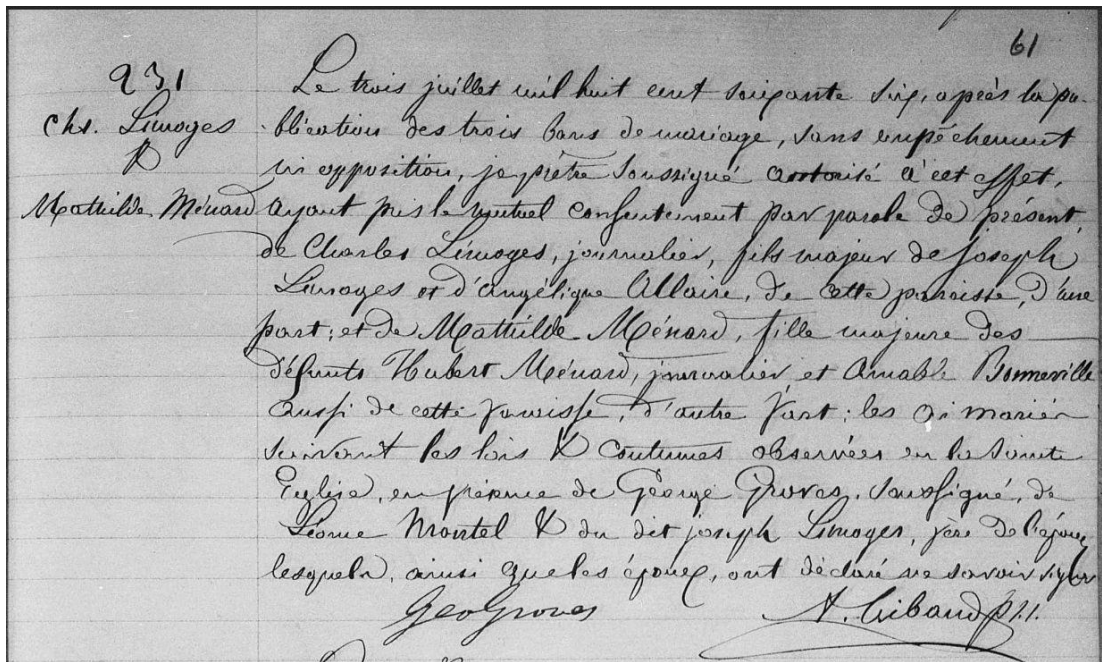 61
231
Chs. Limoges
&
Mathilde Ménard
Le trois juillet mil huit cent soixante six, après la pu-
blication des trois bans de mariage, sans empêchement
ni opposition, je prêtre soussigné autorisé à cet effet,
ayant pris le mutuel consentement par parole de présent
de Charles Limoges, journalier, fils majeur de joseph
Limoges et d'angélique Allaire, de cette paroisse, d'une
part; et de Mathilde Ménard, fille majeure des
défunts Hubert Ménard, journalier, et Amable Bonneville
aussi de cette paroisse, d'autre part; les ai mariés
suivant les lois & coutumes observées en la Sainte
Eglise, en présence de George Groves, soussigné, de
& du dit joseph Limoges, père de l'époux
lesquels, ainsi que les époux, ont déclaré ne savoir signer
Geo Groves